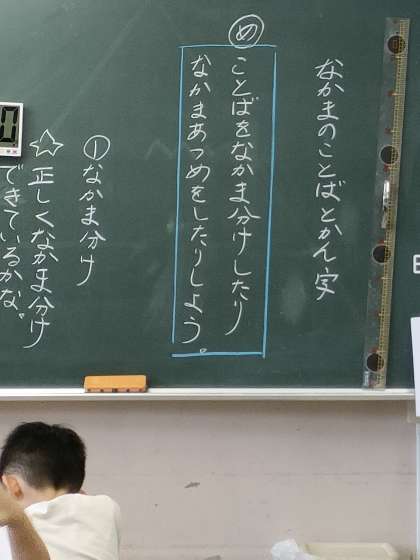 なかまのことばとかん字
め
ことばをなかま分けしたり
なかまあつめをしたりしよう。
①なかま分け
☆正しくなかま分け
できているかな。